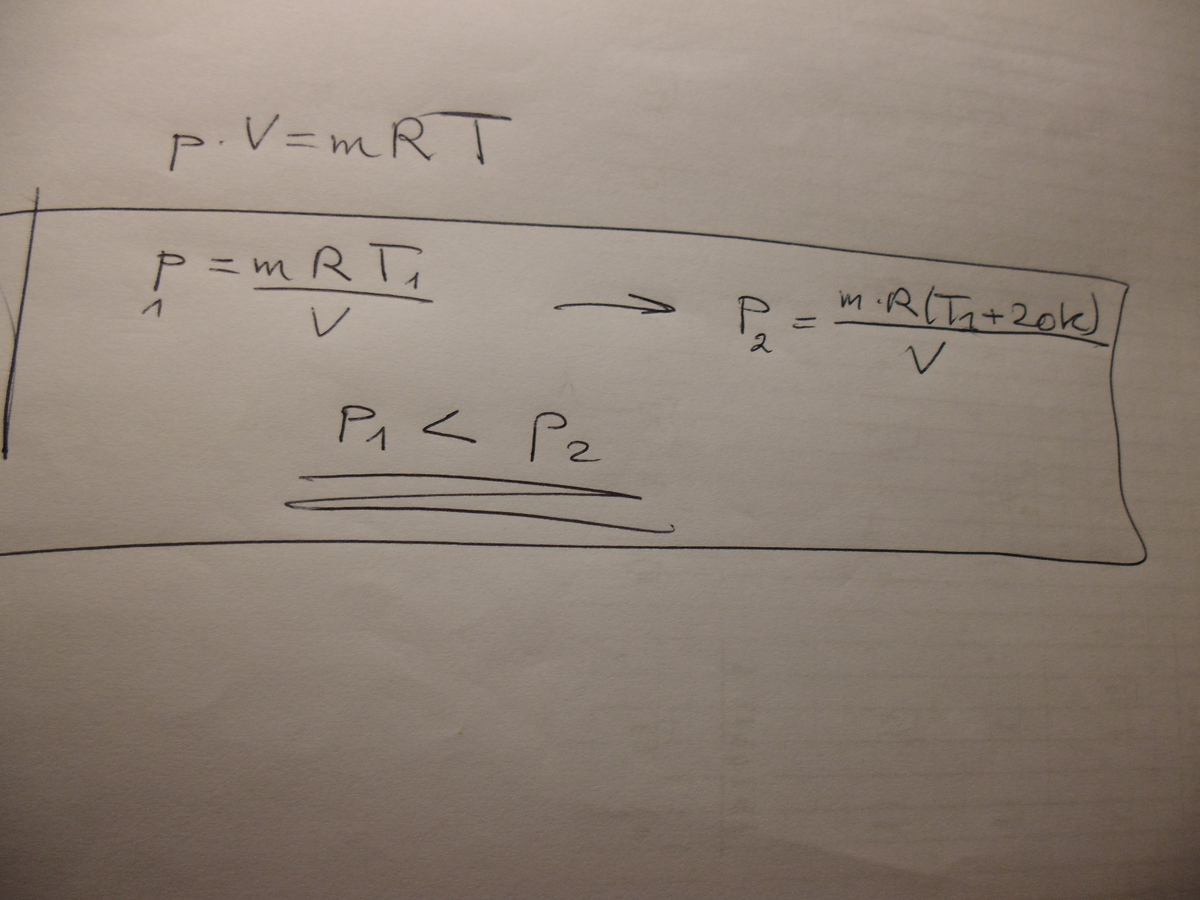 p · V = m R T
p₁ = m R T₁ / V → P₂ = m · R (T₁ + 20k) / V
P₁ < P₂